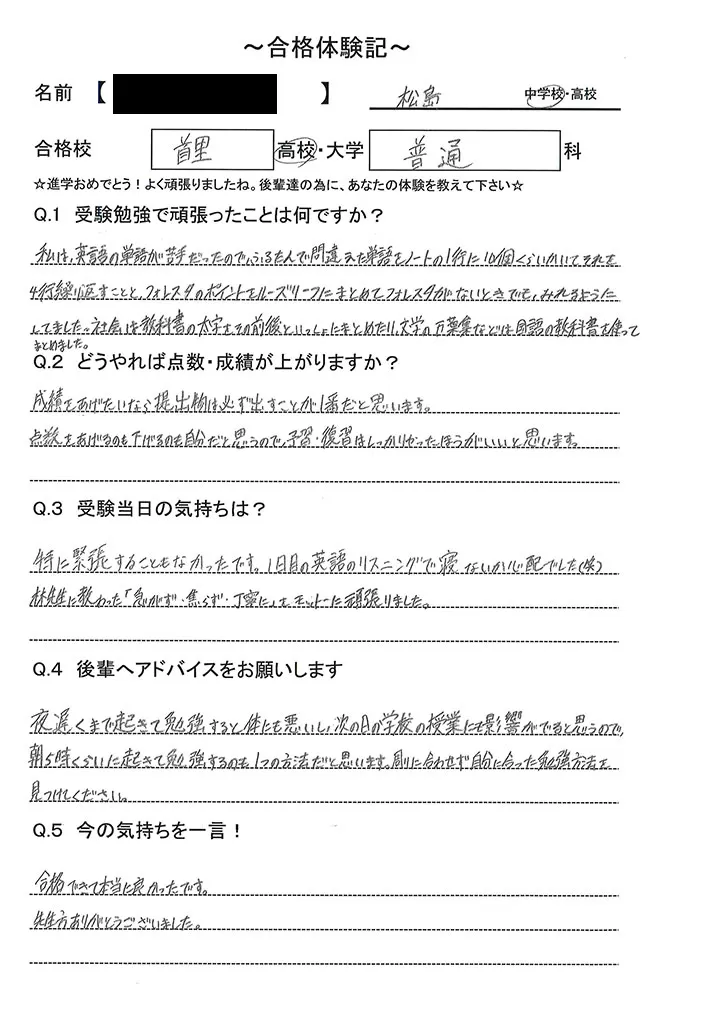 ～合格体験記～
名前 【 】 松島 中学校・高校
合格校 首里 高校・大学 普通 科
☆進学おめでとう！よく頑張りましたね。後輩達の為に、あなたの体験を教えて下さい☆
Q.1 受験勉強で頑張ったことは何ですか？
私は、英語の単語が苦手だったので、ふるたんで間違えた単語をノートの1行に10個くらいかいてそれを
4行繰り返すことと、フォレスタのポイントをルーズリーフにまとめてフォレスタがないときでも、みれるように
してました。社会は教科書の太字をその前後といっしょにまとめたり、文学の万葉集などは国語の教科書も使って
まとめました。
Q.2 どうやれば点数・成績が上がりますか？
成績をあげたいなら提出物は必ず出すことが1番だと思います。
点数をあげるのも下げるのも自分だと思うので、予習・復習はしっかりやったほうがいいと思います。
Q.3 受験当日の気持ちは？
特に緊張することもなかったです。1日目の英語のリスニングで寝ないか心配でした(笑)
林先生に教わった「急がず・焦らず・丁寧に」をモットーに頑張りました。
Q.4 後輩へアドバイスをお願いします
夜遅くまで起きて勉強すると体にも悪いし、次の日の学校の授業にも影響がでると思うので、
朝5時くらいに起きて勉強するのも1つの方法だと思います。周りに合わせず自分に合った勉強方法を
見つけてください。
Q.5 今の気持ちを一言！
合格できて本当に良かったです。
先生方ありがとうございました。